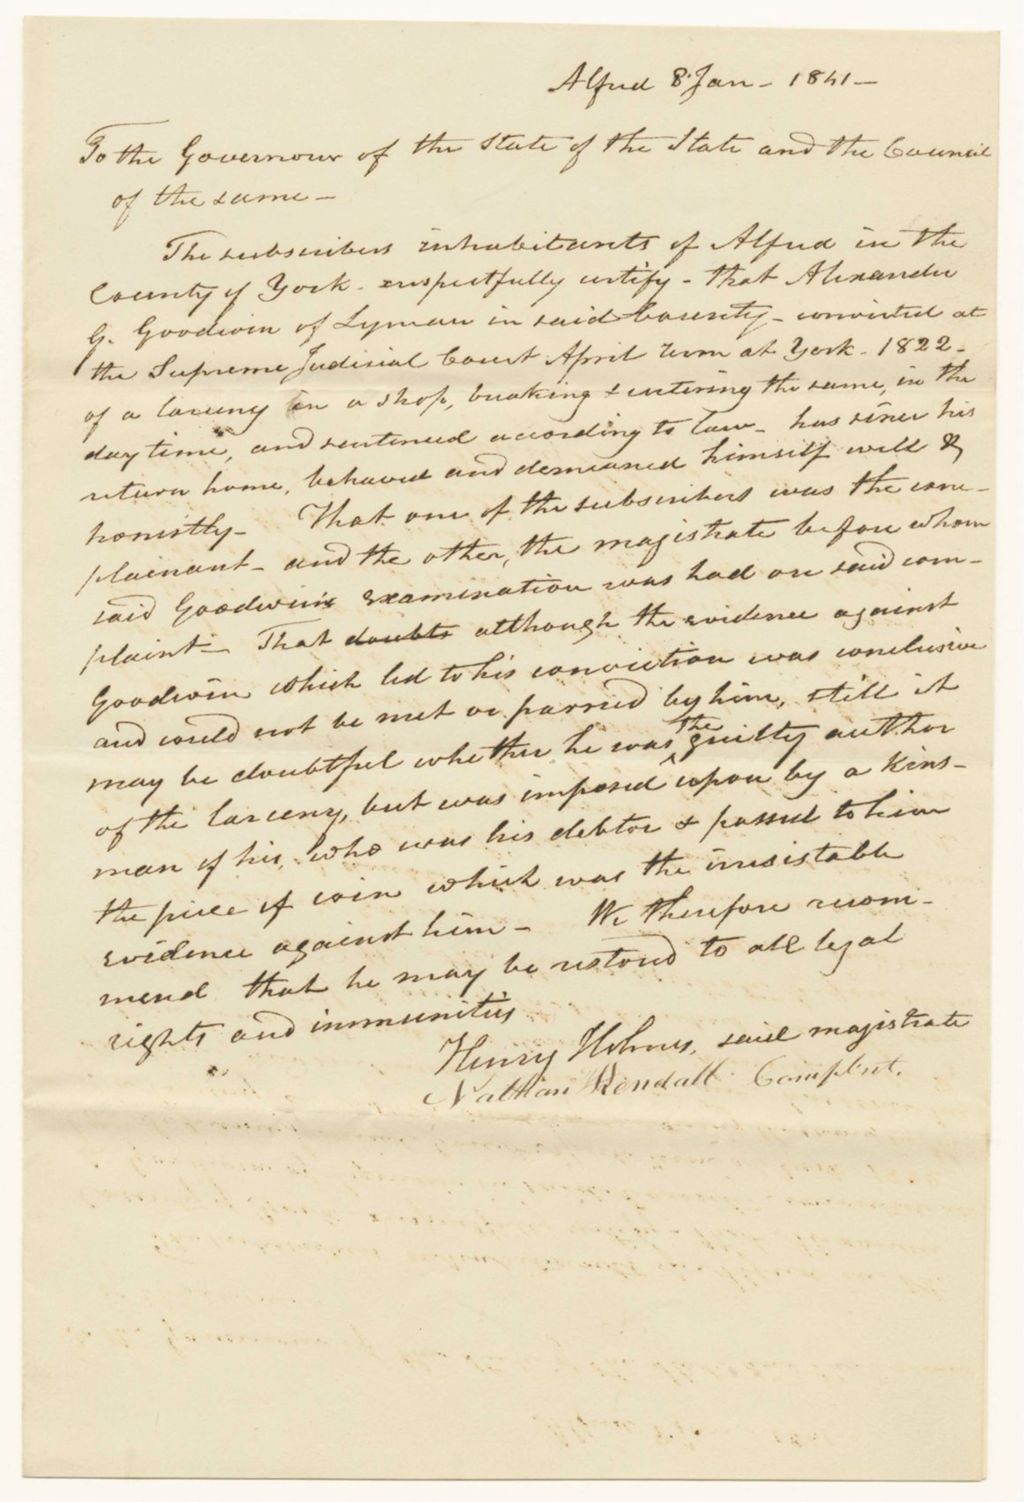 Alfred 8 Jan - 1841 -
To the Governour of the State of the State and the Council
of the same -
The subscribers inhabitants of Alfred in the
County of York - respectfully certify - that Alexander
G. Goodwin of Lyman in said County - convicted at
the Supreme Judicial Court April Term at York - 1822 -
of a larceny in a shop, breaking & entering the same, in the
day time, and sentenced according to law - has since his
return home, behaved and demeaned himself well &
honestly - That one of the subscribers was the com-
plainant - and the other, the magistrate before whom
said Goodwin's examination was had on said com-
plaint - That doubts although the evidence against
Goodwin which led to his conviction was conclusive
and could not be met or parried by him, still it
may be doubtful whether he was the guilty author
of the larceny, but was imposed upon by a kins-
man of his, who was his debtor & passed to him
the piece of coin which was the irresistable
evidence against him - We therefore recom-
mend that he may be restored to all legal
rights and immunities
Henry Holmes, said magistrate
Nathan Kendall Complnt.